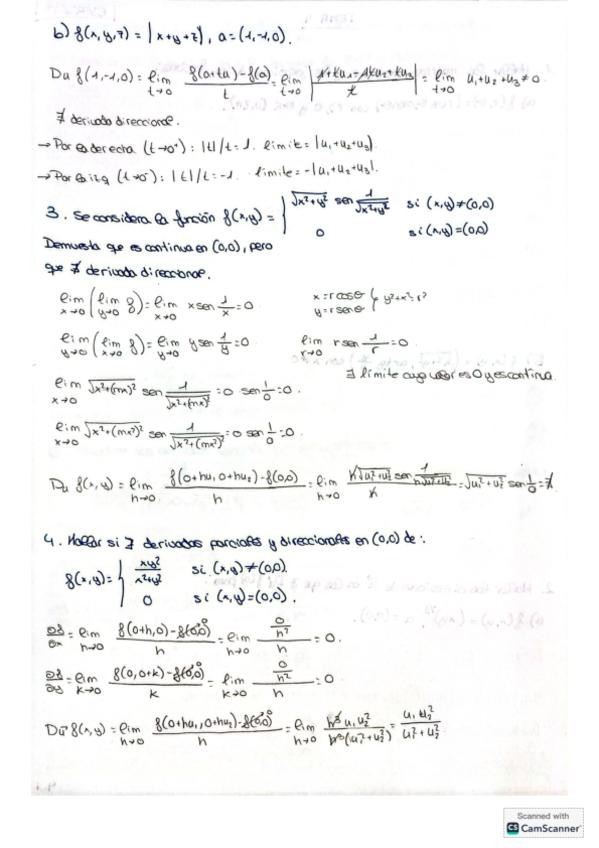 b) f(x,y,z) = |x+y+z|, a=(1,-1,0).
Du f(1,-1,0) = lim t→0 f(a+tu)-f(a) / t = lim t→0 |1+tu1-1+tu2+tu3| / t = lim t→0 u1+u2+u3 ≠ 0.
∄ derivada direccional.
→ Por la derecha (t→0+): |t|/t = 1. límite = |u1+u2+u3|.
→ Por la izq (t→0-): |t|/t = -1. límite = -|u1+u2+u3|.
3. Se considera la función f(x,y) = { √x²+y² sen 1/√x²+y² si (x,y)≠(0,0)
0 si (x,y)=(0,0)
Demuestra que es continua en (0,0), pero
que ∄ derivada direccional.
lim x→0 (lim y→0 f) = lim x→0 x sen 1/x = 0 x=r cosθ y=r senθ } y²+x²=r²
lim y→0 (lim x→0 f) = lim y→0 y sen 1/y = 0 lim r→0 r sen 1/r = 0.
∃ límite cuyo valor es 0 y es continua.
lim x→0 √x²+(mx)² sen 1/√x²+(mx)² = 0 sen 1/0 = 0.
lim x→0 √x²+(mx²)² sen 1/√x²+(mx²)² = 0 sen 1/0 = 0.
Du f(x,y) = lim h→0 f(0+hu1, 0+hu2)-f(0,0) / h = lim h→0 h√u1²+u2² sen 1/h√u1²+u2² / h = √u1²+u2² sen 1/0 = ∄
4. Hallar si ∃ derivadas parciales y direccionales en (0,0) de:
f(x,y) = { xy²/x²+y² si (x,y)≠(0,0).
0 si (x,y)=(0,0).
∂f/∂x = lim h→0 f(0+h,0)-f(0,0) / h = lim h→0 0/h² / h = 0.
∂f/∂y = lim k→0 f(0,0+k)-f(0,0) / k = lim k→0 0/h² / h = 0
Du f(x,y) = lim h→0 f(0+hu1, 0+hu2)-f(0,0) / h = lim h→0 h³ u1 u2² / h³(u1²+u2²) = u1 u2² / u1²+u2²
Scanned with
CS CamScanner